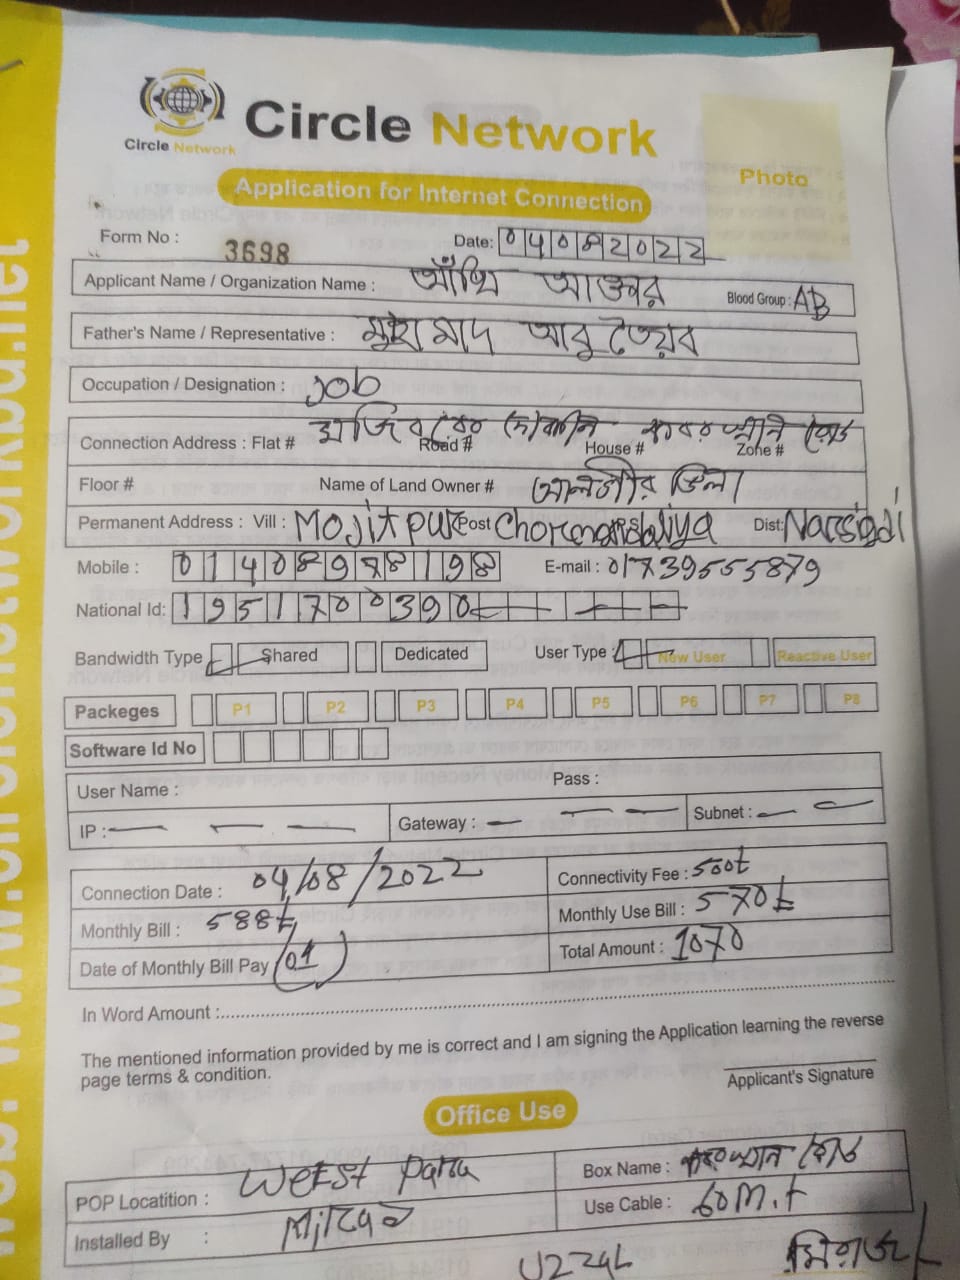 Circle Network
Circle Network
Photo
Application for Internet Connection
Form No : 3698 Date: 04082022
Applicant Name / Organization Name : আঁখি আক্তার Blood Group : AB
Father's Name / Representative : মুহাম্মাদ আবু তৈয়ব
Occupation / Designation : Job
Connection Address : Flat # Road # House # Zone #
Floor # Name of Land Owner # ভিলা
Permanent Address : Vill : Mojitpur Post Dist: Narsigdi
Mobile : 01408978198 E-mail : 01739555879
National Id: 1951700390
Bandwidth Type Shared Dedicated User Type : New User Reactive User
Packeges P1 P2 P3 P4 P5 P6 P7 P8
Software Id No
User Name : Pass :
IP : Gateway : Subnet :
Connection Date : 04/08/2022 Connectivity Fee : 500t
Monthly Bill : 588t Monthly Use Bill : 570t
Date of Monthly Bill Pay 01 Total Amount : 1070
In Word Amount :
The mentioned information provided by me is correct and I am signing the Application learning the reverse
page terms & condition.
Applicant's Signature
Office Use
POP Locatition : West Para Box Name :
Installed By : Use Cable : 60 M.t
Uzzal মিরাজ